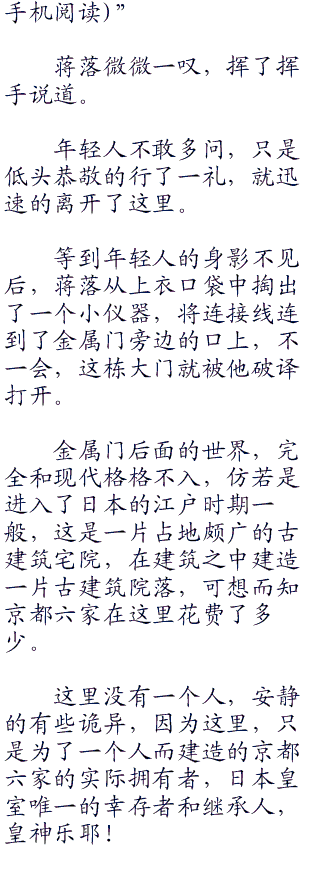 手机阅读)”
蒋落微微一叹，挥了挥
手说道。
年轻人不敢多问，只是
低头恭敬的行了一礼，就迅
速的离开了这里。
等到年轻人的身影不见
后，蒋落从上衣口袋中掏出
了一个小仪器，将连接线连
到了金属门旁边的口上，不
一会，这栋大门就被他破译
打开。
金属门后面的世界，完
全和现代格格不入，仿若是
进入了日本的江户时期一
般，这是一片占地颇广的古
建筑宅院，在建筑之中建造
一片古建筑院落，可想而知
京都六家在这里花费了多
少。
这里没有一个人，安静
的有些诡异，因为这里，只
是为了一个人而建造的京都
六家的实际拥有者，日本皇
室唯一的幸存者和继承人，
皇神乐耶！